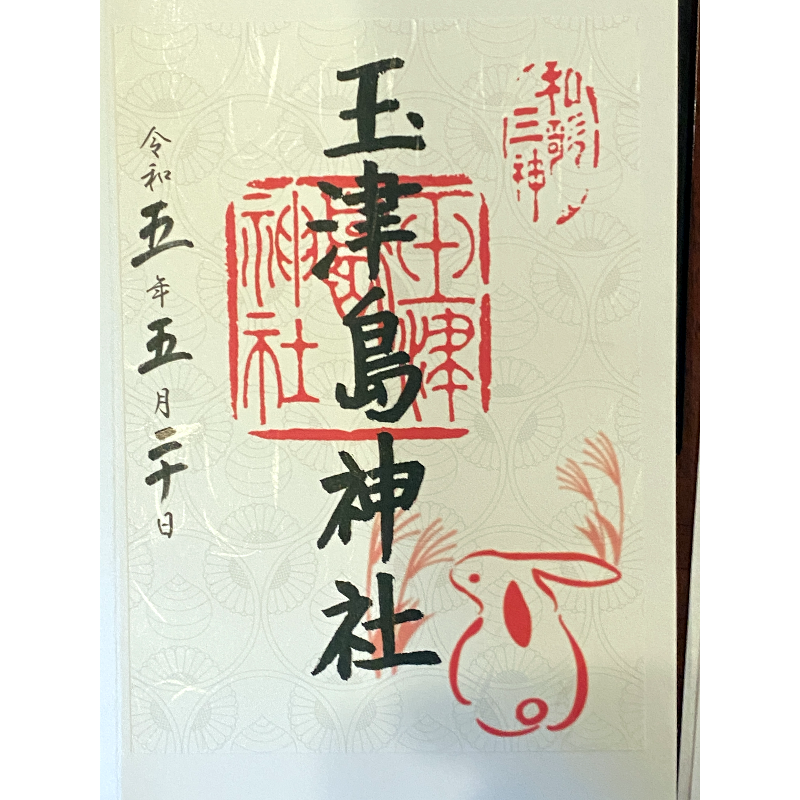 和歌
三神
玉津島神社
玉津
島
神社
令和五年五月二十日